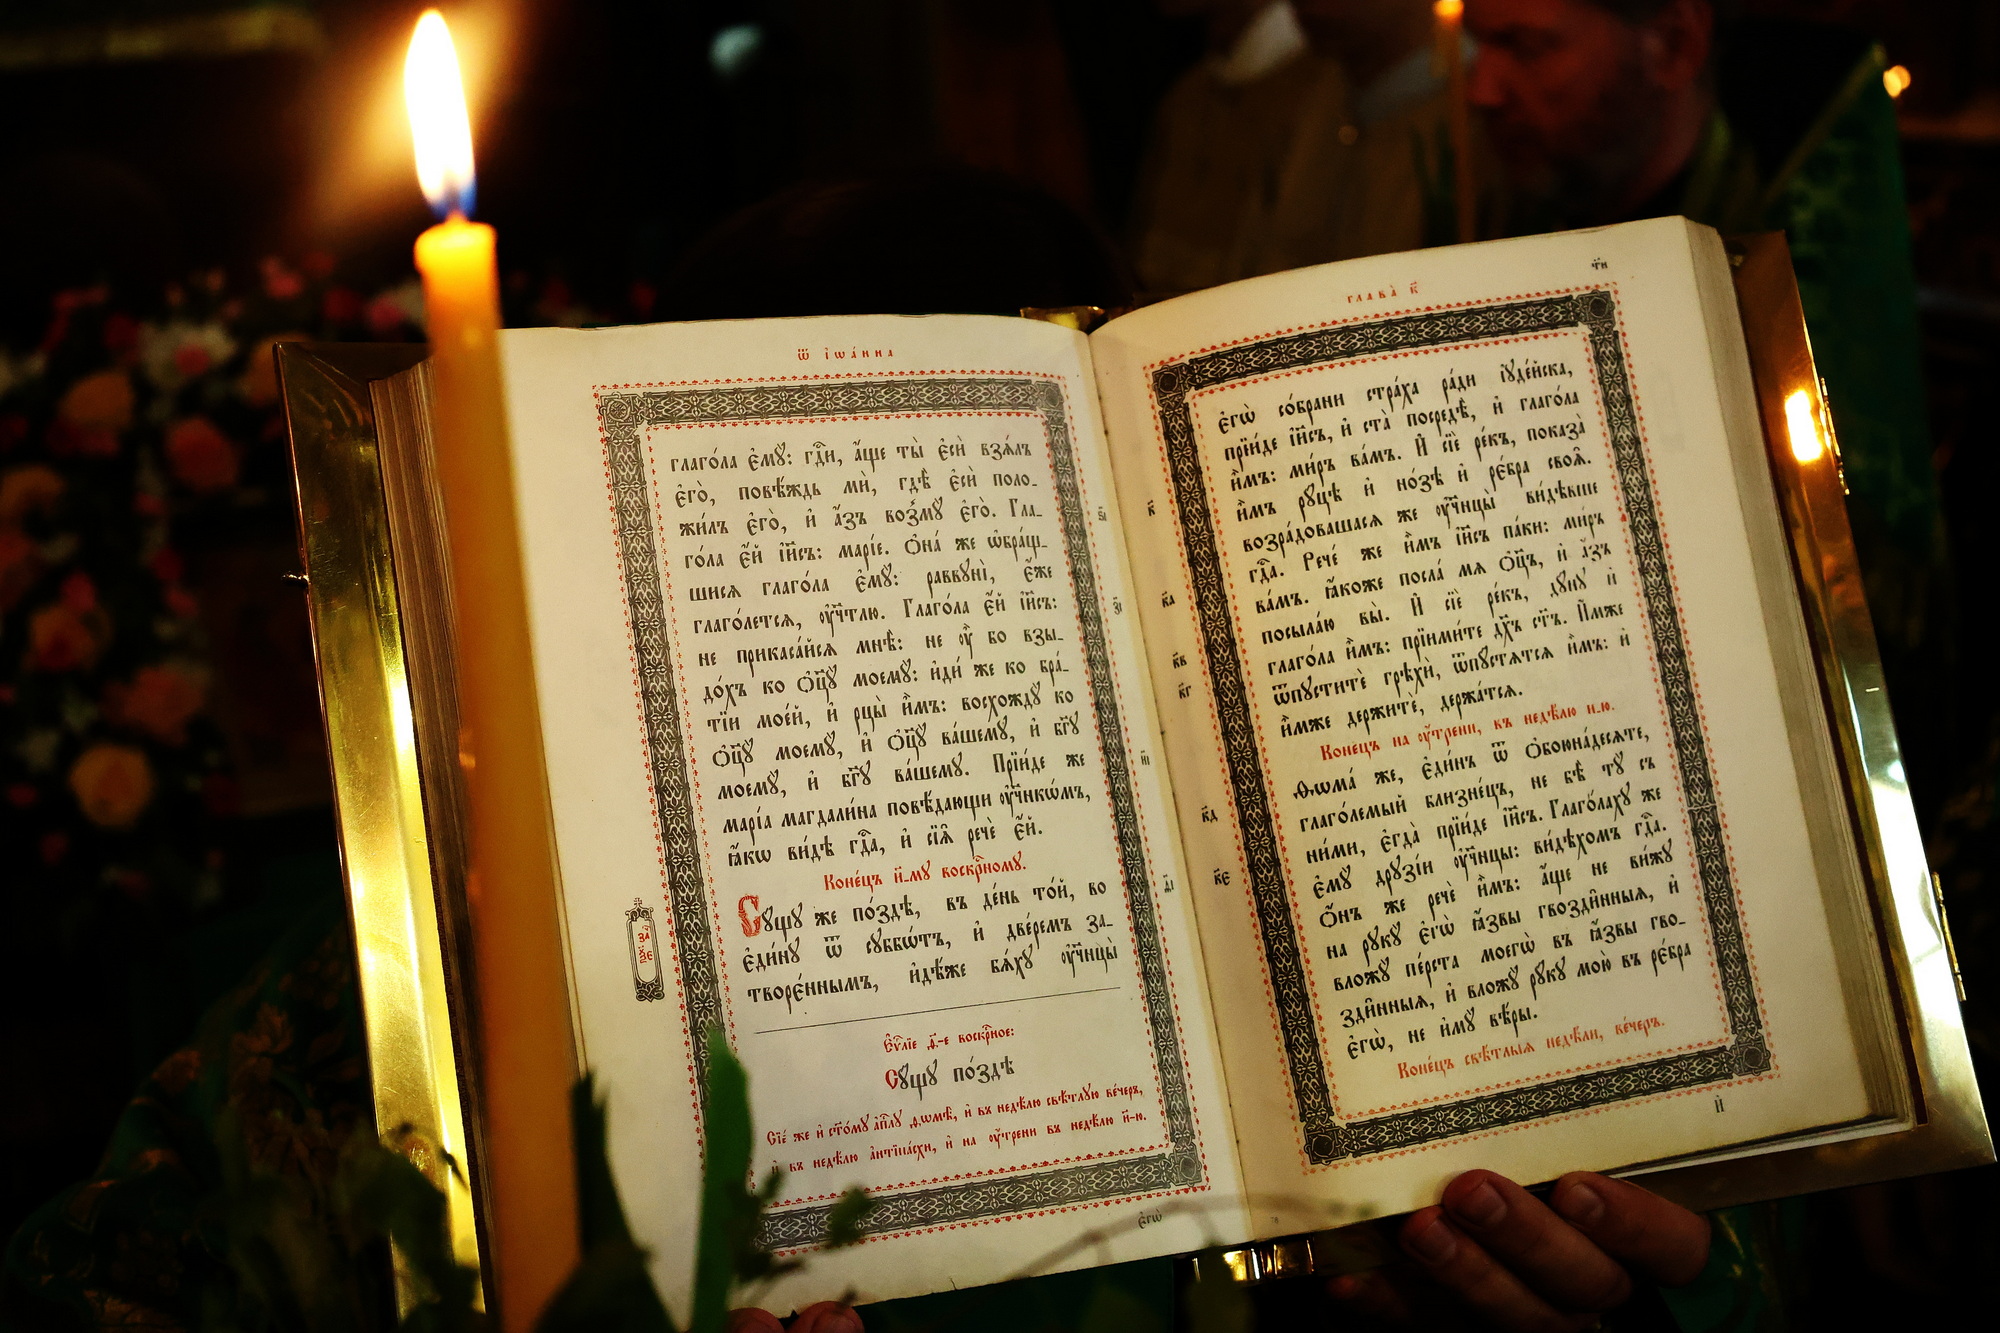 ѿ і҆ѡа́нна
глаго́ла є҆мꙋ̀: гдⷭ҇и, а҆́ще ты̀ є҆сѝ взѧ́лъ
є҆го̀, повѣ́ждь мѝ, гдѣ̀ є҆сѝ поло-
жи́лъ є҆го̀, и҆ а҆́зъ возмꙋ̀ є҆го̀. Гла-
го́ла є҆́й і҆и҃съ: марі́е. Ѻ҆на́ же ѡ҆бра́щ-
шисѧ глаго́ла є҆мꙋ̀: раввꙋнì, є҆́же
глаго́летсѧ, ᲂу҆чт҃лю. Глаго́ла є҆́й і҆и҃съ:
не прикаса́йсѧ мнѣ̀: не ᲂу҆̀ бо взы-
до́хъ ко ѻ҆ц҃ꙋ̀ моемꙋ̀: и҆ди́ же ко бра́-
тїи мое́й, и҆ рцы̀ и҆̀мъ: восхождꙋ̀ ко
ѻ҆ц҃ꙋ̀ моемꙋ̀, и҆ ѻ҆ц҃ꙋ̀ ва́шемꙋ, и҆ бг҃ꙋ
моемꙋ̀, и҆ бг҃ꙋ ва́шемꙋ. Прїи́де же
марі́а магдали́на повѣ́дающи ᲂу҆чн҃кѡ́мъ,
ꙗ҆́кѡ ви́дѣ гдⷭ҇а, и҆ сїѧ̑ речѐ є҆́й.
Коне́цъ и҃-мꙋ воскрⷭ҇номꙋ.
Сꙋ́щꙋ же по́здѣ, въ де́нь то́й, во
є҆ди́нꙋ ѿ сꙋббѡ́тъ, и҆ две́ремъ за-
творє́ннымъ, и҆дѣ́же бѧ́хꙋ ᲂу҆чн҃цы̀
за҄
ѯ҃е
Є҆ѵⷢ҇лїе д҃-е воскрⷭ҇ное:
Сꙋ́щꙋ по́здѣ
Сїе́ же и҆ ст҃о́мꙋ а҆пⷭ҇лꙋ ѳѡмѣ̀, и҆ въ недѣ́лю свѣ́тлꙋю ве́черъ,
и҆ въ недѣ́лю а҆нтїпа́схи, и҆ на ᲂу҆́трени въ недѣ́лю и҃-ю.
є҆гѡ̀
глава̀ к҃
є҆гѡ̀ со́брани стра́ха ра́ди і҆ꙋде́йска,
прїи́де і҆и҃съ, и҆ ста̀ посредѣ̀, и҆ глаго́ла
и҆̀мъ: ми́ръ ва́мъ. И҆ сїѐ ре́къ, показа̀
и҆̀мъ рꙋ́цѣ и҆ но́зѣ и҆ ре́бра своѧ̑.
возра́довашасѧ же ᲂу҆чн҃цы̀ ви́дѣвше
гдⷭ҇а. Рече́ же и҆̀мъ і҆и҃съ па́ки: ми́ръ
ва́мъ. ꙗ҆́коже посла́ мѧ ѻ҆ц҃ъ, и҆ а҆́зъ
посыла́ю вы̀. И҆ сїѐ ре́къ, дꙋ́нꙋ и҆
глаго́ла и҆̀мъ: прїими́те дх҃ъ ст҃ъ. И҆̀мже
ѿпꙋститѐ грѣхѝ, ѿпꙋ́стѧтсѧ и҆̀мъ: и҆
и҆̀мже держитѐ, держа́тсѧ.
Коне́цъ на ᲂу҆́трени, въ недѣ́лю н҃-ю.
Ѳѡма́ же, є҆ди́нъ ѿ ѻ҆боюна́десѧте,
глаго́лемый близне́цъ, не бѣ̀ тꙋ̀ съ
ни́ми, є҆гда̀ прїи́де і҆и҃съ. Глаго́лахꙋ же
є҆мꙋ̀ дрꙋзі́и ᲂу҆чн҃цы: ви́дѣхомъ гдⷭ҇а.
Ѻ҆́нъ же речѐ и҆̀мъ: а҆́ще не ви́жꙋ
на рꙋкꙋ̀ є҆гѡ̀ ꙗ҆́звы гвозди̑нныѧ, и҆
вложꙋ̀ пе́рста моегѡ̀ въ ꙗ҆́звы гво-
зди̑нныѧ, и҆ вложꙋ̀ рꙋ́кꙋ мою̀ въ ре́бра
є҆гѡ̀, не и҆мꙋ̀ вѣ́ры.
Коне́цъ свѣ́тлыѧ недѣ́ли, ве́черъ.
к҃
к҃а
к҃в
к҃г
к҃д
к҃є
и҆